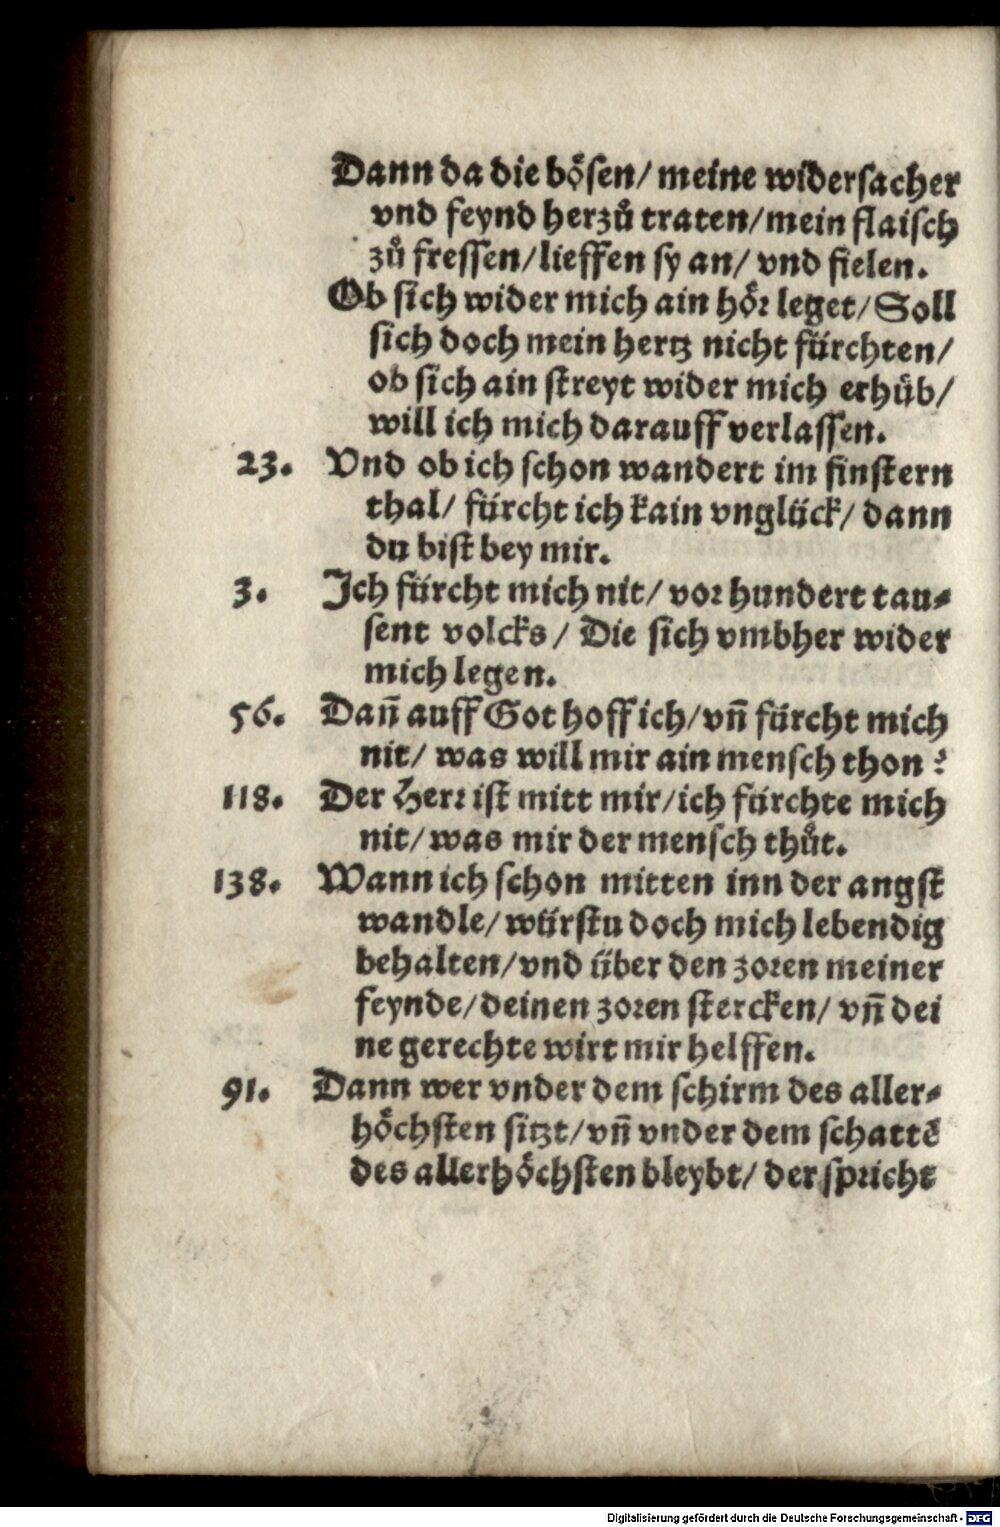 Dann da die bösen/ meine widersacher
vnd feynd herzů traten/mein flaisch
zů fressen/lieffen sy an/ vnd fielen.
Ob sich wider mich ain hör leget/Soll
sich doch mein hertz nicht fürchten/
ob sich ain streyt wider mich erhüb/
will ich mich darauff verlassen.
23. Vnd ob ich schon wandert im finstern
thal/ fürcht ich kain vnglück/ dann
du bist bey mir.
3. Ich fürcht mich nit/ vor hundert tau⸗
sent volcks/ Die sich vmbher wider
mich legen.
56. Dañ auff Got hoff ich/vñ fürcht mich
nit/ was will mir ain mensch thon?
118. Der Herr ist mitt mir/ich fürchte mich
nit/was mir der mensch thůt.
138. Wann ich schon mitten inn der angst
wandle/würstu doch mich lebendig
behalten/vnd über den zoren meiner
feynde/deinen zoren stercken/ vñ dei
ne gerechte wirt mir helffen.
91. Dann wer vnder dem schirm des aller⸗
höchsten sitzt/vñ vnder dem schattē
des allerhöchsten bleybt/ der spricht
Digitalisierung gefördert durch die Deutsche Forschungsgemeinschaft - DFG